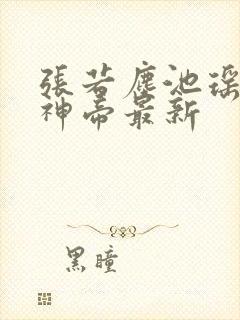 張若塵池瑶
神帝最新
黑瞳